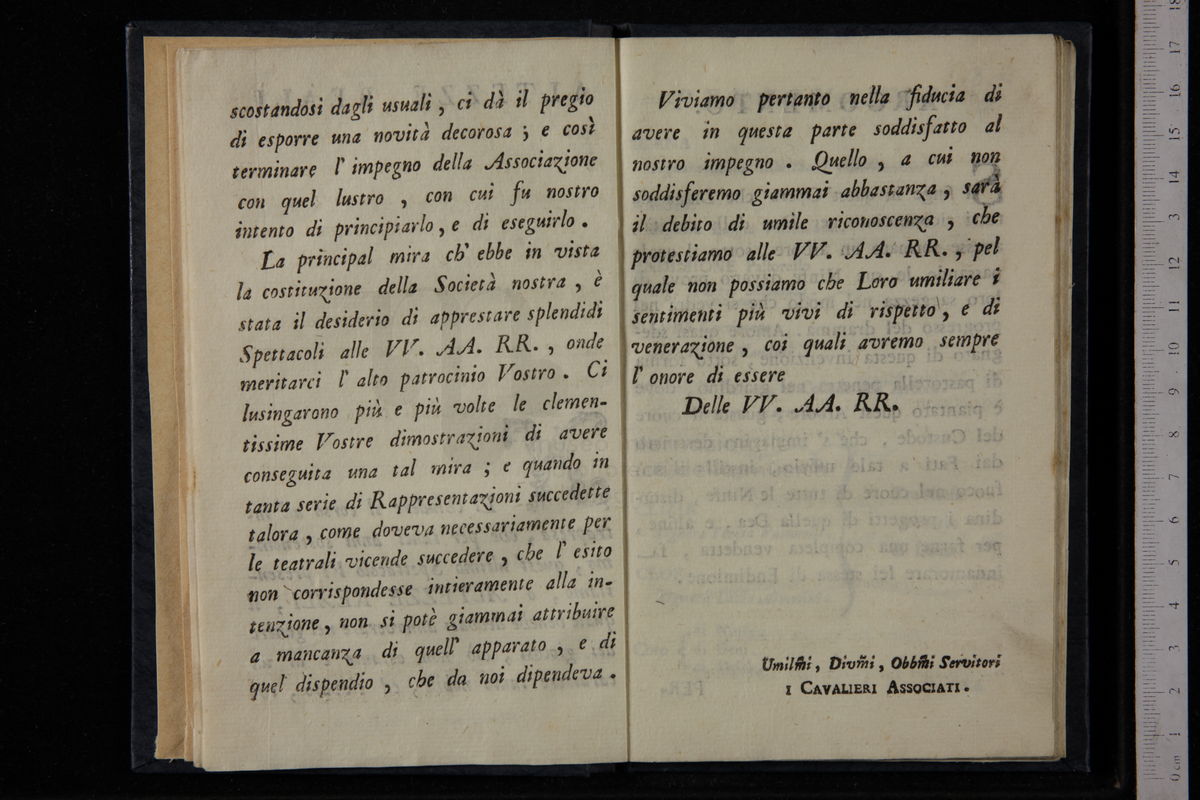 scostandosi dagli usuali, ci dà il pregio
di esporre una novità decorosa; e così
terminare l'impegno della Associazione
con quel lustro, con cui fu nostro
intento di principiarlo, e di eseguirlo.
La principal mira ch'ebbe in vista
la costituzione della Società nostra, è
stata il desiderio di apprestare splendidi
Spettacoli alle VV. AA. RR., onde
meritarci l'alto patrocinio Vostro. Ci
lusingarono più e più volte le clemen-
tissime Vostre dimostrazioni di avere
conseguita una tal mira; e quando in
tanta serie di Rappresentazioni succedette
talora, come doveva necessariamente per
le teatrali vicende succedere, che l'esito
non corrispondesse intieramente alla in-
tenzione, non si potè giammai attribuire
a mancanza di quell'apparato, e di
quel dispendio, che da noi dipendeva.
Viviamo pertanto nella fiducia di
avere in questa parte soddisfatto al
nostro impegno. Quello, a cui non
soddisferemo giammai abbastanza, sarà
il debito di umile riconoscenza, che
protestiamo alle VV. AA. RR., pel
quale non possiamo che Loro umiliare i
sentimenti più vivi di rispetto, e di
venerazione, coi quali avremo sempre
l'onore di essere
Delle VV. AA. RR.
Umilm̃i, Divm̃i, Obbm̃i Servitori
I CAVALIERI ASSOCIATI.